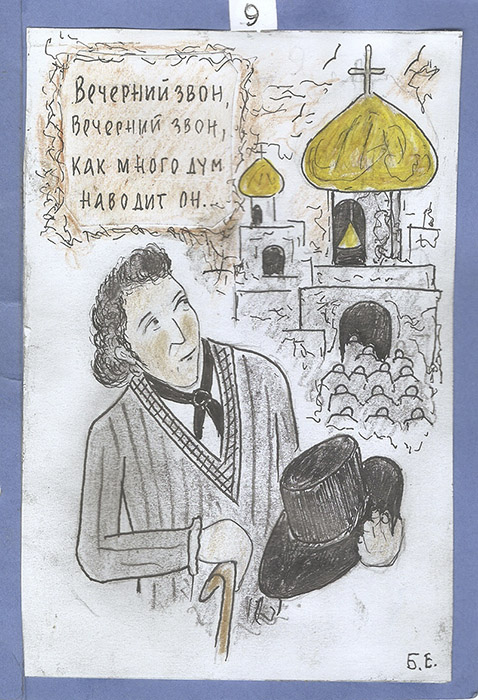 9
Вечерний звон,
Вечерний звон,
как много дум
наводит он...
Б.Е.